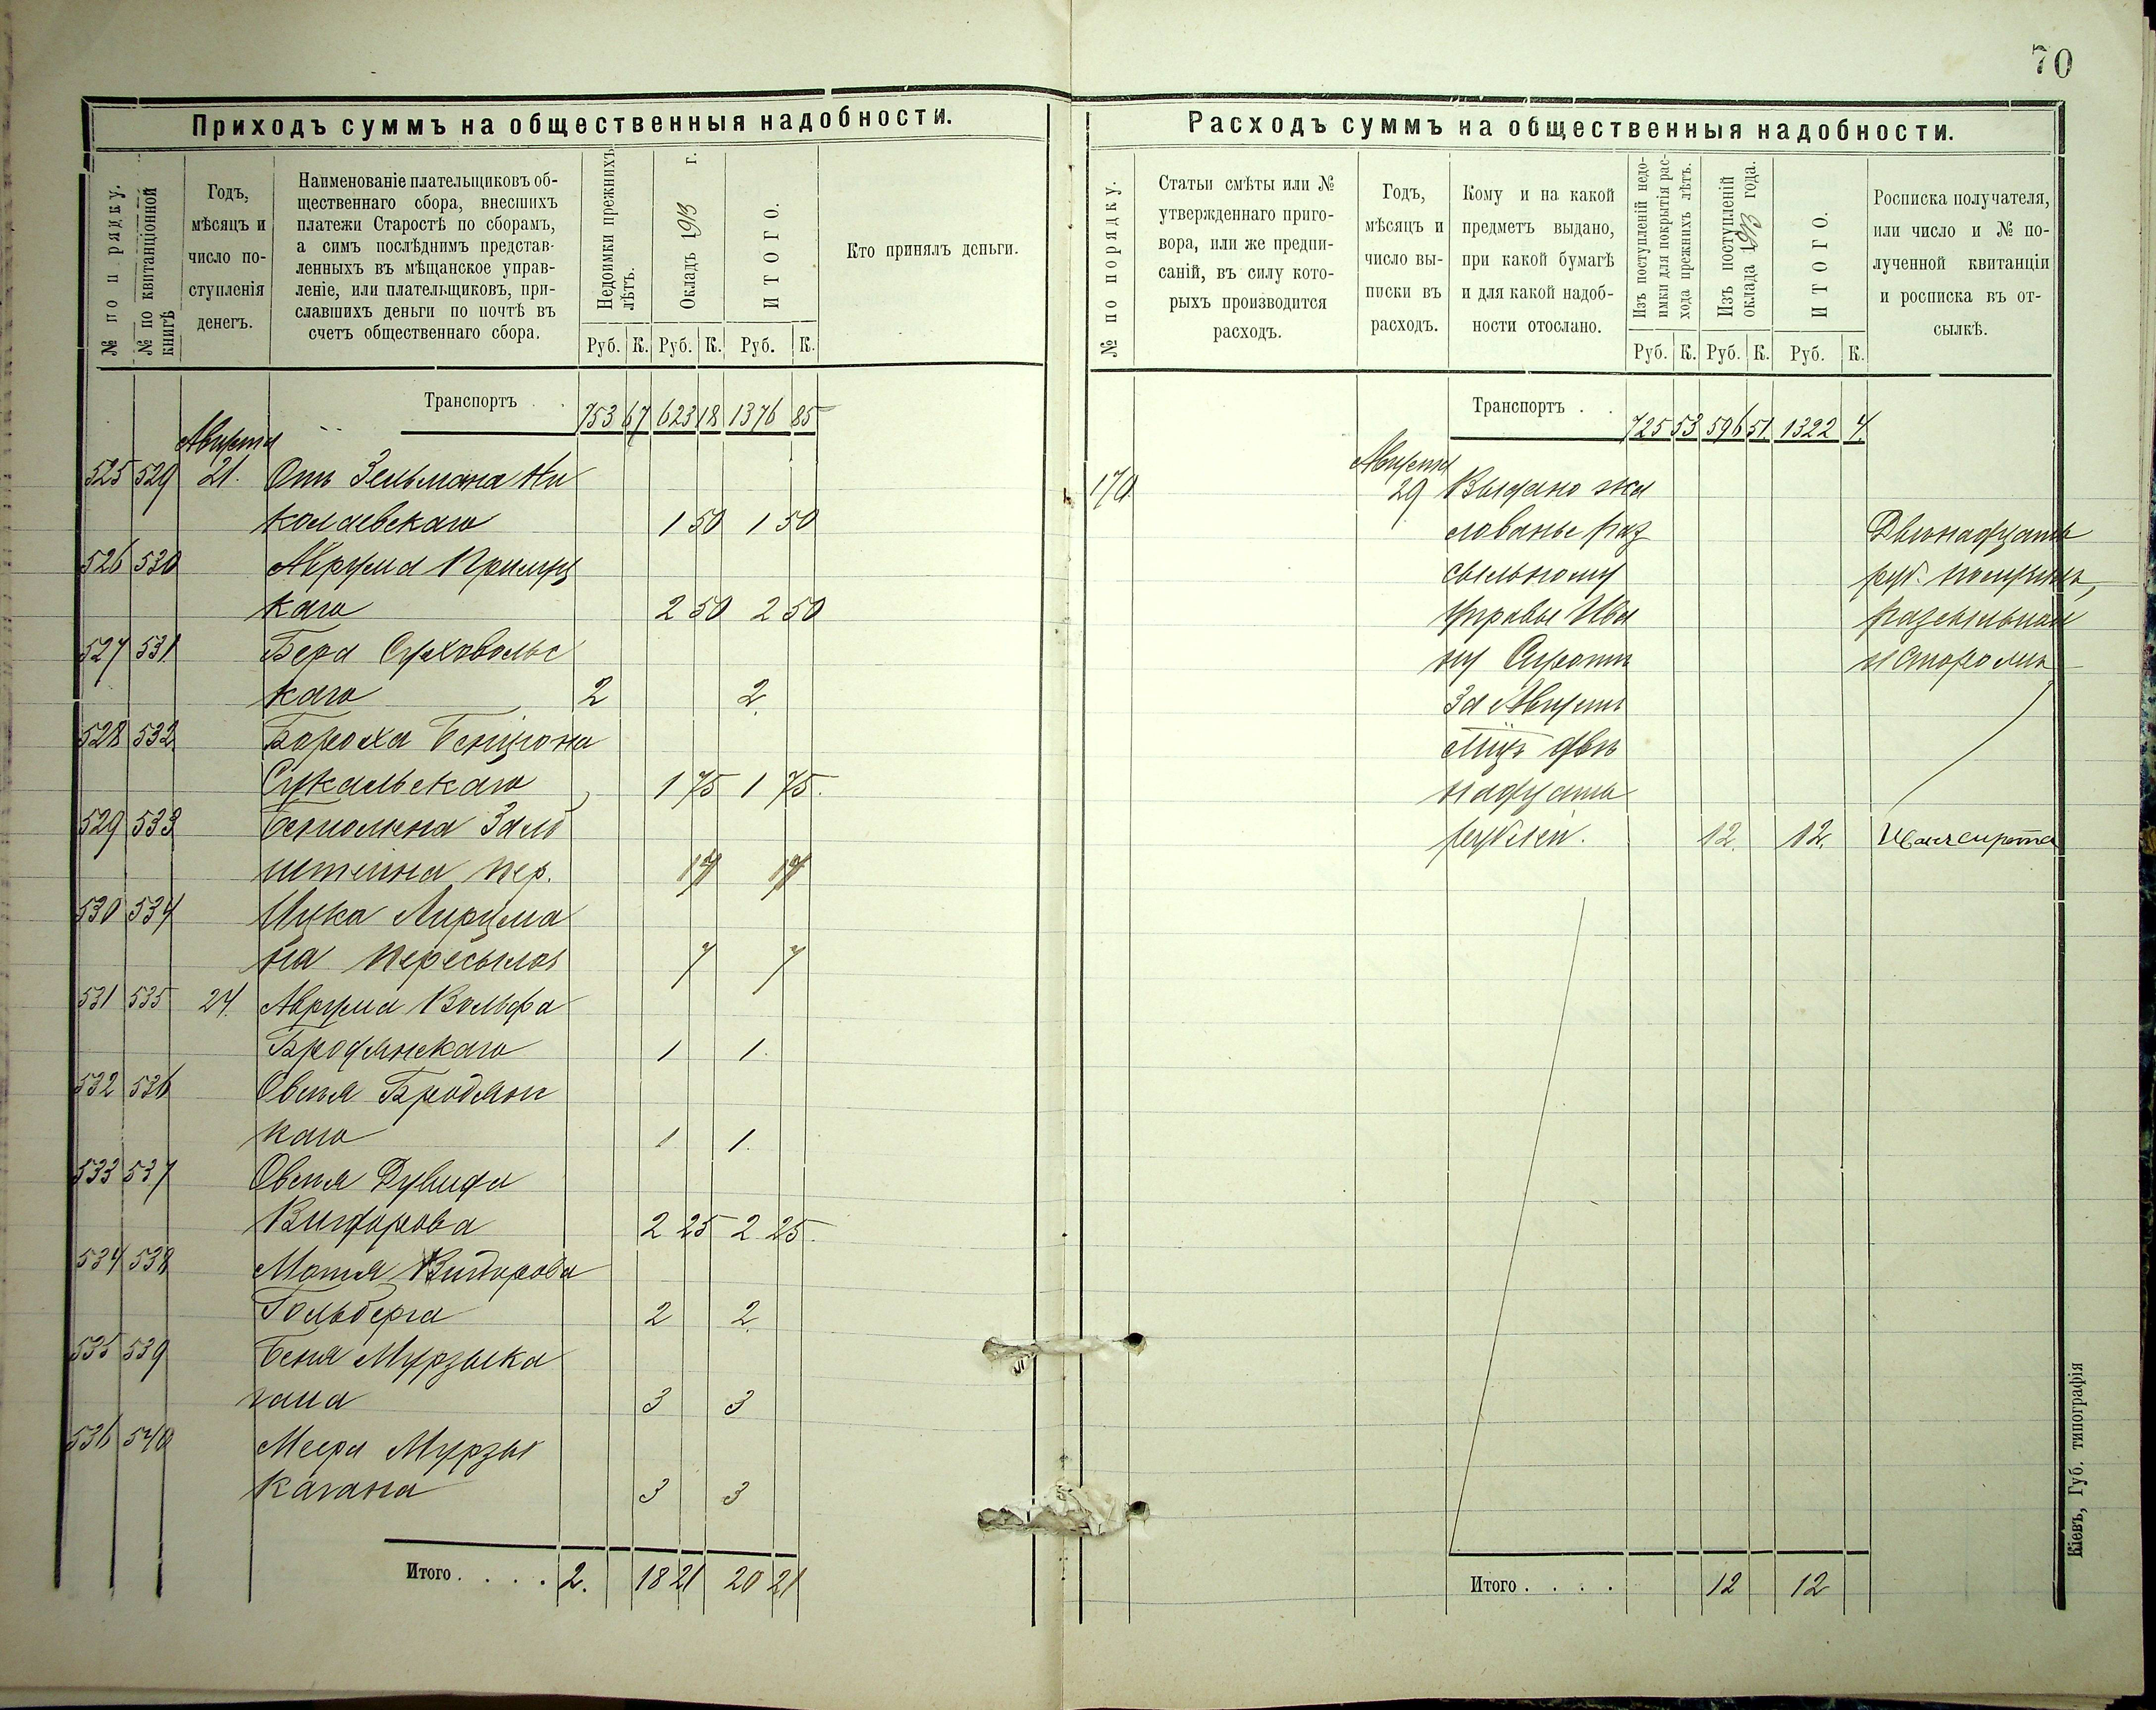 70
Приходъ суммъ на общественныя надобности.
№ по порядку.
№ по квитанціонной книгѣ
Годъ,
мѣсяцъ и
число по-
ступленія
денегъ.
Наименованіе плательщиковъ об-
щественнаго сбора, внесшихъ
платежи Старостѣ по сборамъ,
а симъ послѣднимъ представ-
ленныхъ въ мѣщанское управ-
леніе, или плательщиковъ, при-
славшихъ деньги по почтѣ въ
счетъ общественнаго сбора.
Недоимки прежнихъ
лѣтъ.
Окладъ 1913 г.
ИТОГО.
Кто принялъ деньги.
Руб. К. Руб. К. Руб. К.
Транспортъ . . 753 67 623 18 1376 85
Августа
525 529 21. Отъ Зельмана Ни
колаевскаго 1 50 1 50
526 530 Аврума Прилуц
каго 2 50 2 50
527 531 Бера Суховольс
каго 2 2
528 532 Бороха Бенціона
Сукальскаго 1 75 1 75
529 533 Зальб
штейна пер. 14 14
530 534 Ицка
на пересылов 7 7
531 535 24. Аврума Вольфа
Бродянскаго 1 1
532 536 Овсея Бродянс
каго 1 1
533 537 Овсея Дувида
Видорова 2 25 2 25
534 538 Мотя Видорова
Гольберга 2 2
535 539 Беня Мурзыка
гана 3 3
536 540 Меера Мурзы
кагана 3 3
Итого . . . . 2. 18 21 20 21
Расходъ суммъ на общественныя надобности.
№ по порядку.
Статьи смѣты или №
утвержденнаго приго-
вора, или же предпи-
саній, въ силу кото-
рыхъ производится
расходъ.
Годъ,
мѣсяцъ и
число вы-
писки въ
расходъ.
Кому и на какой
предметъ выдано,
при какой бумагѣ
и для какой надоб-
ности отослано.
Изъ поступленій недо-
имки для покрытія рас-
хода прежнихъ лѣтъ.
Изъ поступленій
оклада 1913 года.
ИТОГО.
Росписка получателя,
или число и № по-
лученной квитанціи
и росписка въ от-
сылкѣ.
Руб. К. Руб. К. Руб. К.
Транспортъ . . 725 53 596 51 1322 4
Августа
170 29 Выдано жа
лованье раз
Двѣнадцать
сыльному
руб. получилъ,
Управы Ива
разсыльный
ну Сиротѣ
и сторожъ
за Августъ
м-цъ двѣ
надцать
рублей. 12. 12. Иван сирота
Итого . . . . 12 12
Кіевъ, Губ. типографія